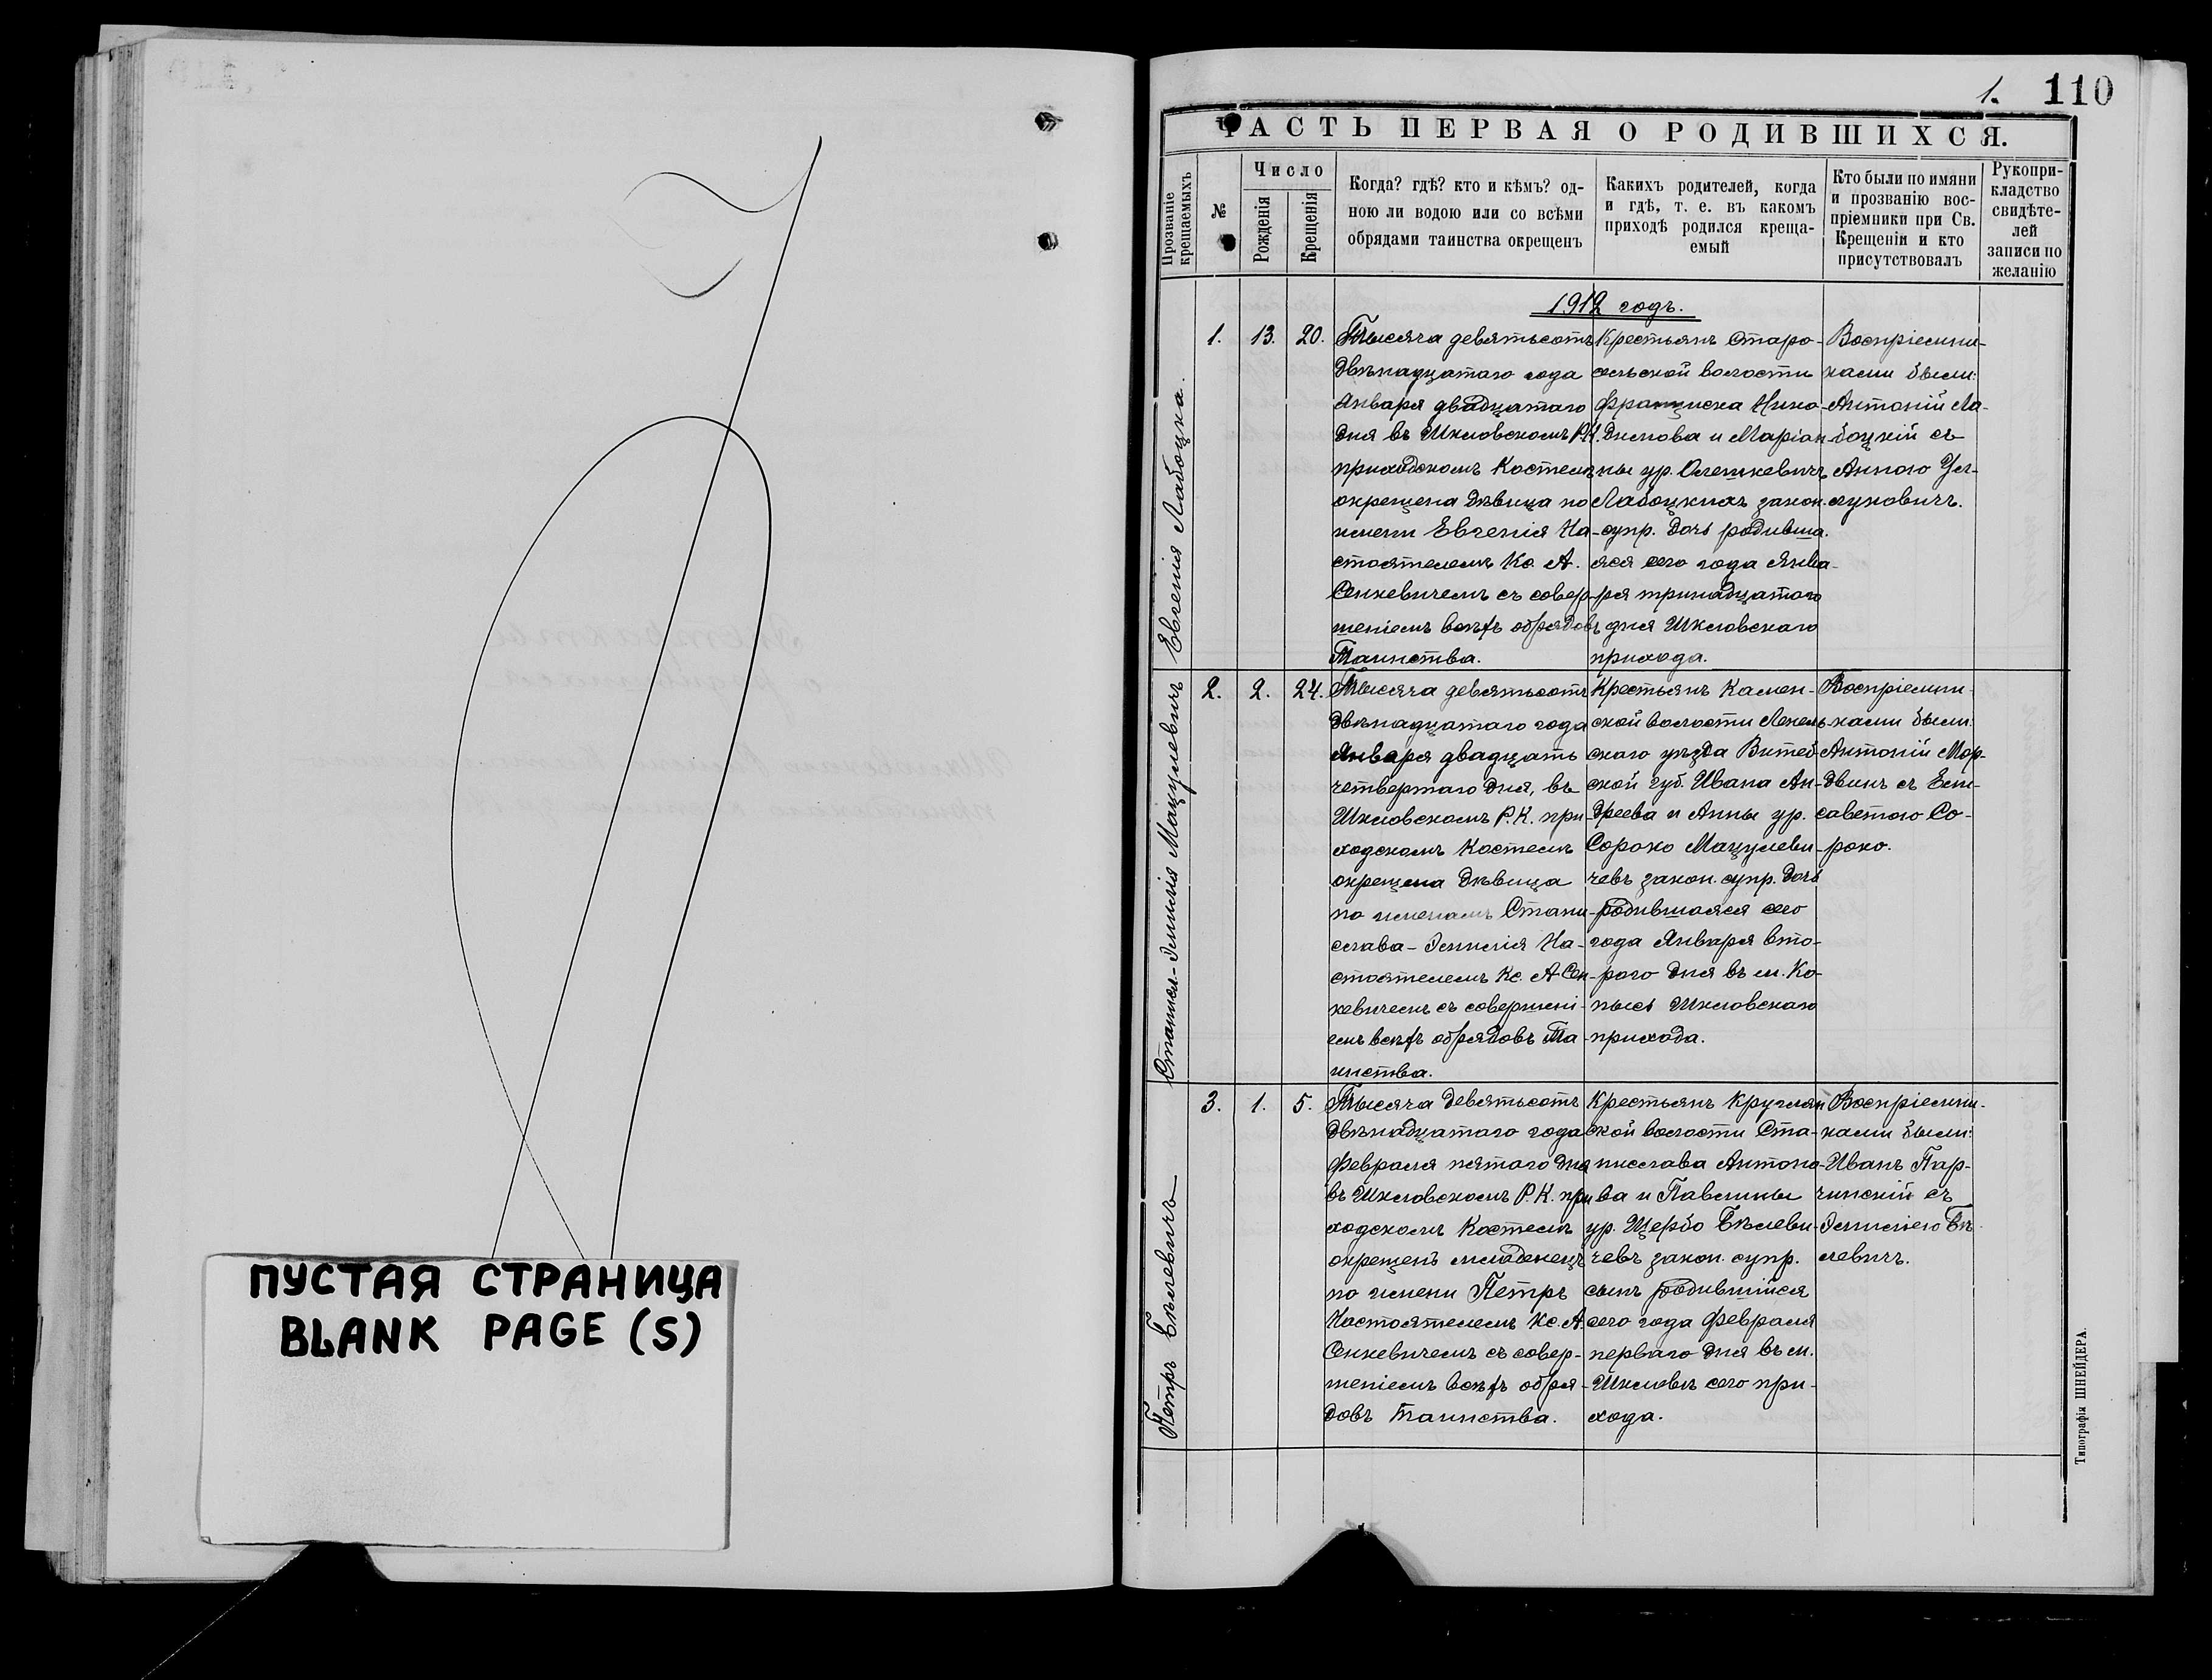 ПУСТАЯ СТРАНИЦА
BLANK PAGE (S)
1. 110
ЧАСТЬ ПЕРВАЯ О РОДИВШИХСЯ.
Прозваніе
крещаемыхъ
№
Число
Рожденія
Крещенія
Когда? гдѣ? кто и кѣмъ? од-
ною ли водою или со всѣми
обрядами таинства окрещенъ
Какихъ родителей, когда
и гдѣ, т. е. въ какомъ
приходѣ родился креща-
емый
Кто были по имяни
и прозванію вос-
пріемники при Св.
Крещеніи и кто
присутствовалъ
Рукопри-
кладство
свидѣте-
лей
записи по
желанію
1912 годъ.
Евгенія Лабоцка.
1. 13. 20.
Тысяча девятьсотъ
двѣнадцатаго года
Января двадцатаго
дня въ Шкловскомъ Р.К.
приходскомъ Костелѣ
окрещена дѣвица по
имени Евгенія На-
стоятелемъ Кс. А.
Сенкевичемъ съ совер-
шеніемъ всѣхъ обрядовъ
Таинства.
Крестьянъ Старо-
сельской волости
Франциска Нико-
димова и Маріан-
ны ур. Олешкевичъ
Лабоцкихъ закон.
супр. дочь родивша-
яся сего года Янва-
ря тринадцатого
дня Шкловскаго
прихода.
Воспріемни-
ками были:
Антоній Ла-
боцкій съ
Анною
Станисл.-Эмилія Мацулевичъ
2. 2. 24.
Тысяча девятьсотъ
двѣнадцатаго года
Января двадцать
четвертаго дня, въ
Шкловскомъ Р.К. при-
ходскомъ Костелѣ
окрещена дѣвица
по именамъ Стани-
слава-Эмилія На-
стоятелемъ Кс. А Сен-
кевичемъ съ совершені-
емъ всѣхъ обрядовъ Та-
инства.
Крестьянъ Камен-
ской волости Лепель-
скаго уѣзда Витеб-
ской губ. Ивана Ан-
дреева и Анны ур.
Сороко Мацулеви-
чевъ закон. супр. дочь
родившаяся сего
года Января вто-
рого дня въ м. Ко-
пысь Шкловскаго
прихода.
Воспріемни-
ками были:
Антоній Мор-
двинъ съ Ели-
саветою Со-
роко.
Петръ Бѣлевичъ
3. 1. 5.
Тысяча девятьсотъ
двѣнадцатаго года
Февраля пятаго дня
въ Шкловскомъ Р.К. при
ходскомъ Костелѣ
окрещенъ младенецъ
по имени Петръ
Настоятелемъ Кс. А.
Сенкевичемъ съ совер-
шеніемъ всѣхъ обря-
довъ Таинства.
Крестьянъ Круглян
ской волости Ста-
нислава Антоно-
ва и Павлины
ур. Щербо Бѣлеви-
чевъ закон. супр.
сынъ родившійся
сего года Февраля
перваго дня въ м.
Шкловѣ сего при-
хода.
Воспріемни-
ками были:
Иванъ Пар-
чинскій съ
Эмиліею Бѣ-
левичъ.
Типографія ШНЕЙДЕРА.